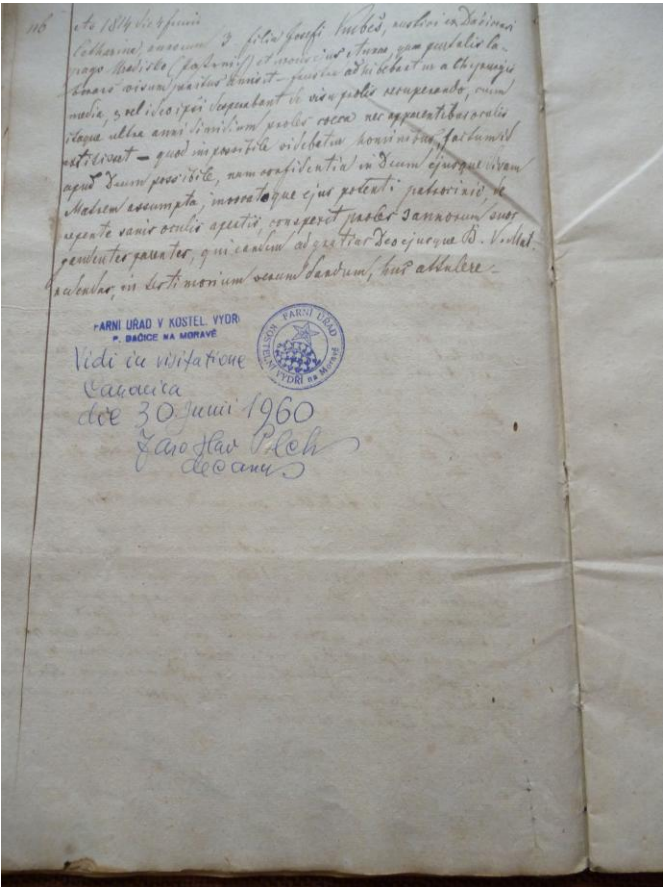 116
Ao 1814 die 4 Junii
Catharina, annorum 3 filia Josefi
visum penitus amisit frustra adhibebantur a Chyrurgis
media, vel ideo ipsi desperabant de visu prolis recuperando, cum
itaque ultra anni dimidium proles coeca nec apparentibus oculis
extitisset – quod impossibile videbatur hominibus, factum id
apud Deum possibile, nam confidentia in Deum ejusque vivam
Matrem assumpta, invocatoque ejus potenti patrocinio, de
repente sanis oculis apertis, conspexit proles 3 annorum suos
gaudentes parentes, qui eandem ad gratias Deo ejusque B. V. Mat.
in testimonium verum dandum, huc attulere –
PARNI ÚŘAD V KOSTEL. VYDŘ
P. DAČICE NA MORAVĚ
PARNÍ ÚŘAD
KOSTELNÍ VYDŘÍ na Moravě
Vidi in visitatione
Canonica
die 30 Junii 1960
Jaroslav Pilch
decanus